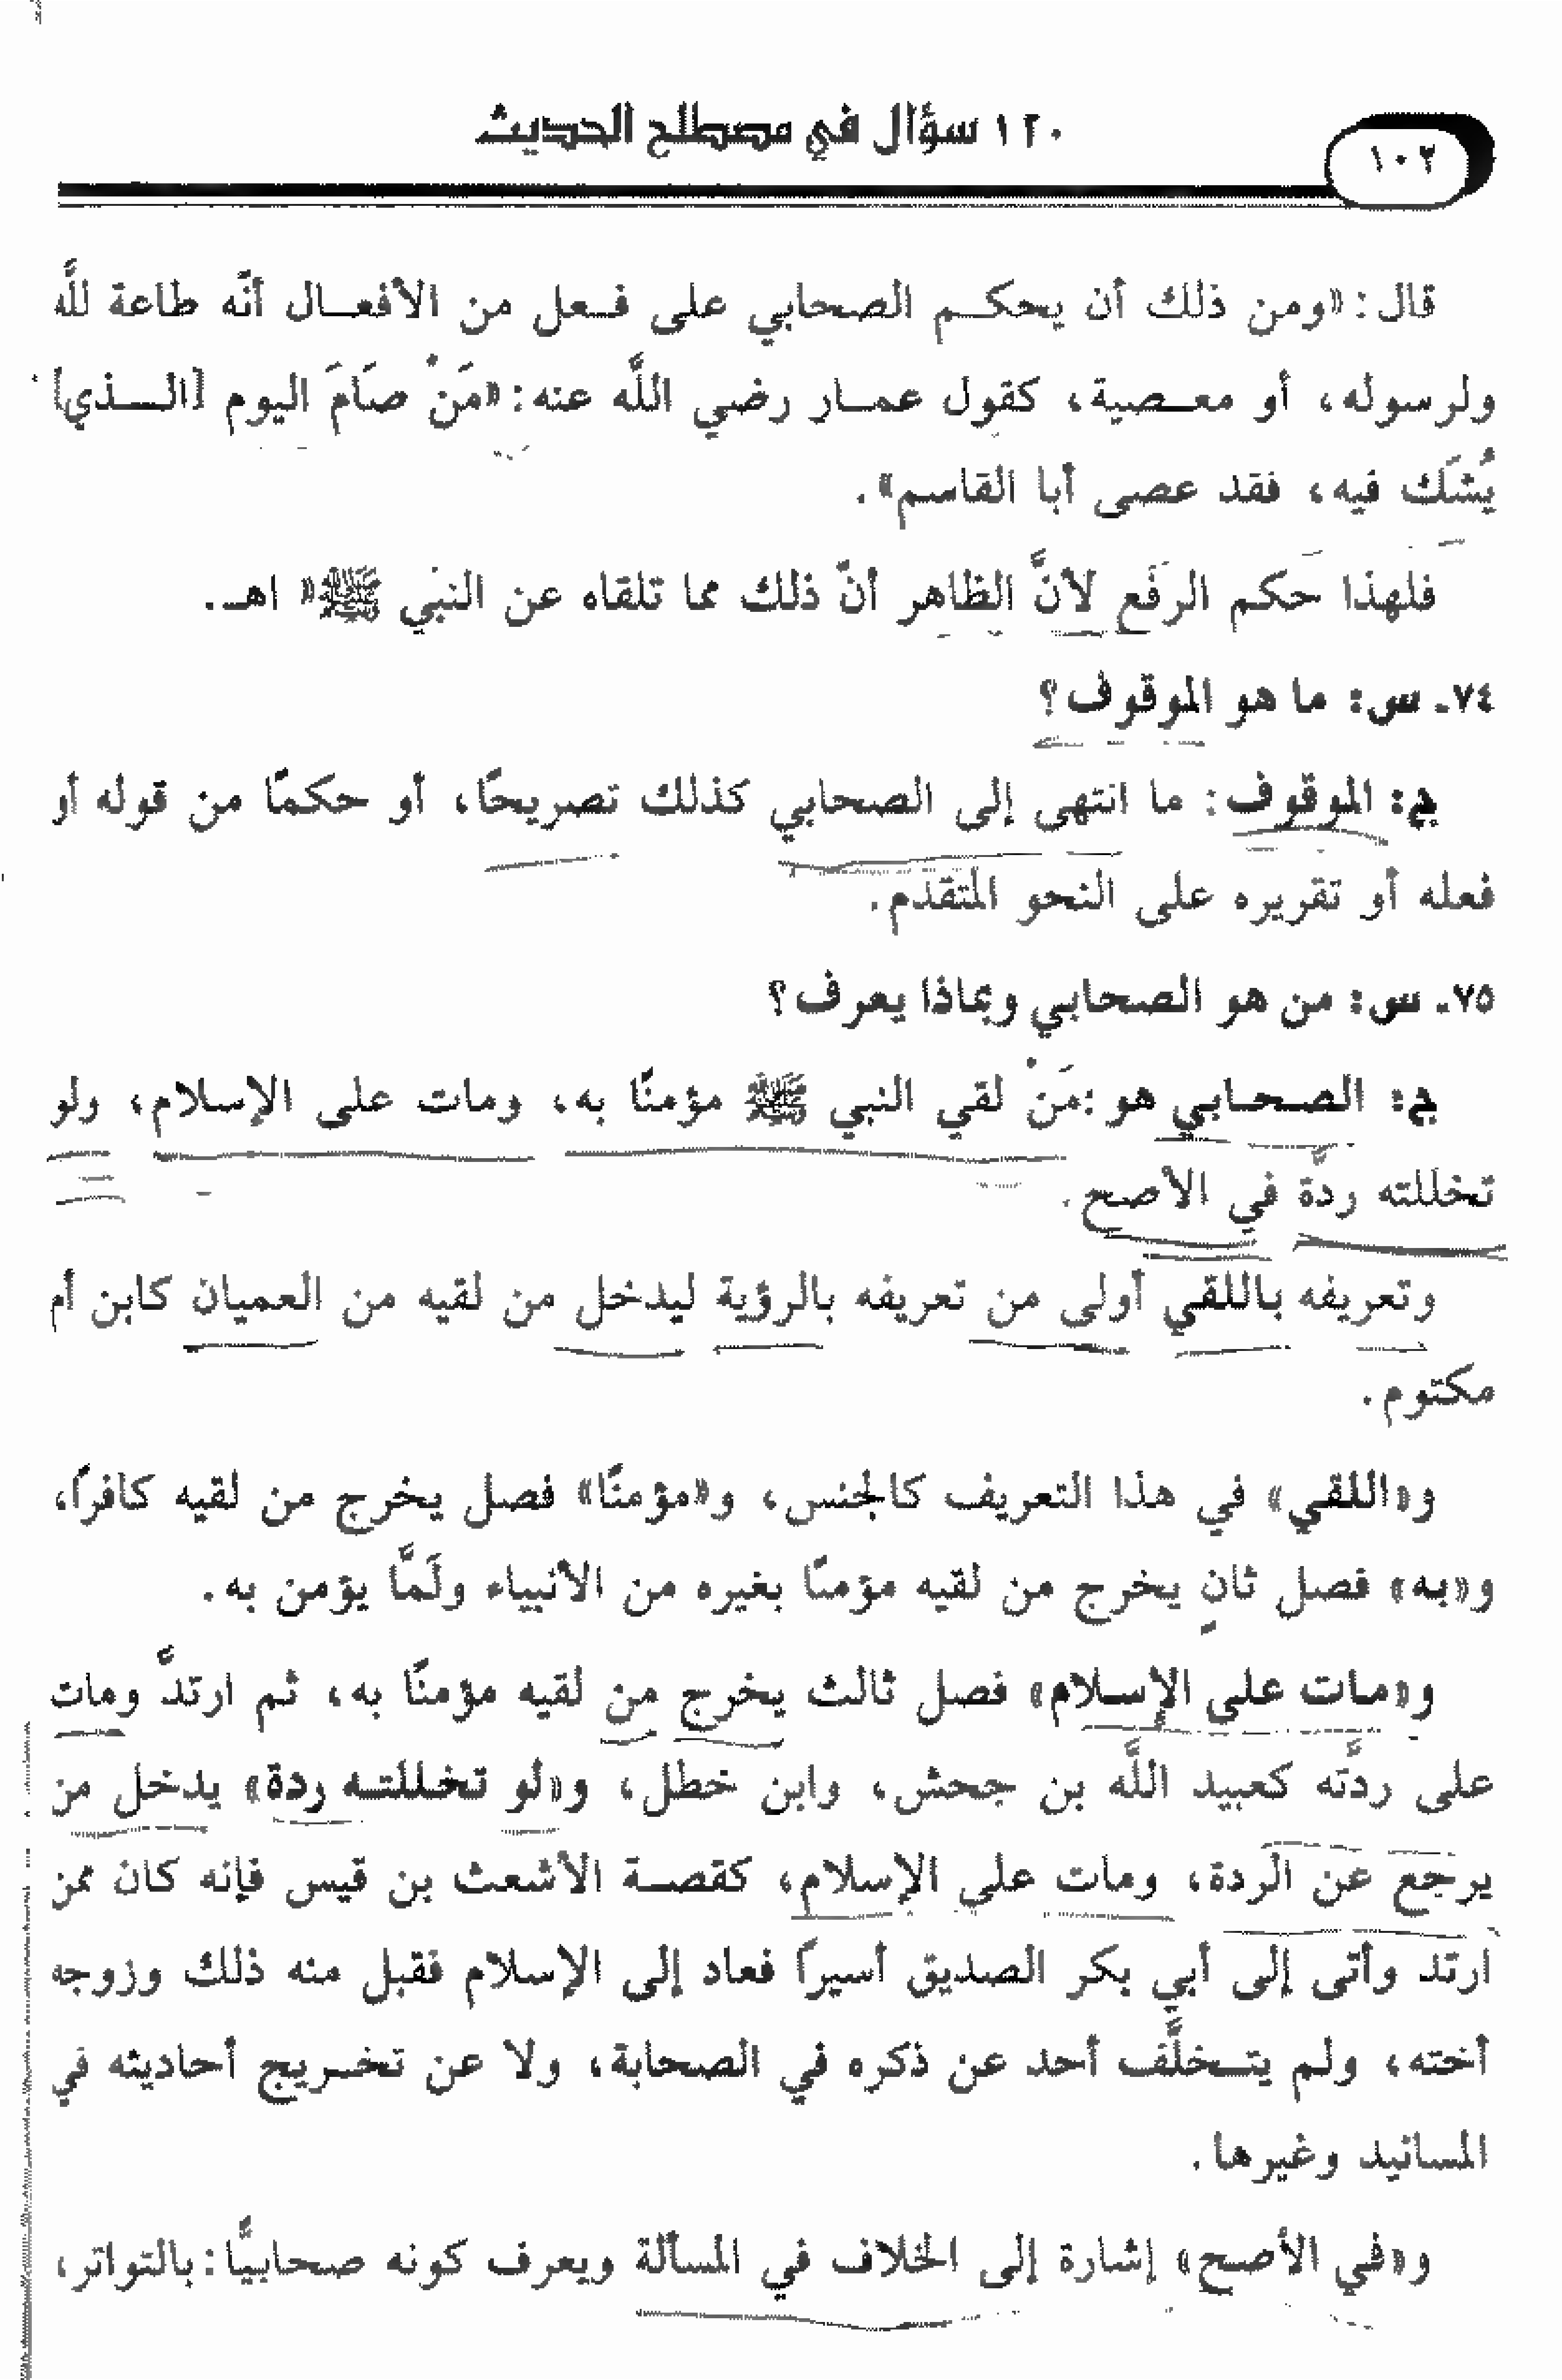 ١٢٠ سؤال في مصطلح الحديث
١٠٢
قال: «ومن ذلك أن يحكـم الصحابي على فـعل من الأفعـال أنّه طاعة للَّه
ولرسوله، أو معـصية، كقول عمـار رضي اللَّه عنه: «مَنْ صَامَ اليوم [الـذي]
يُشَك فيه، فقد عصى أبا القاسم».
فلهذا حَكم الرَفَع لأنَّ الظاهر أنّ ذلك مما تلقاه عن النبي ﷺ» اهـ.
٧٤ـ س: ما هو الموقوف؟
ج: الموقوف: ما انتهى إلى الصحابي كذلك تصريحًا، أو حكمًا من قوله أو
فعله أو تقريره على النحو المتقدم.
٧٥ـ س: من هو الصحابي وبماذا يعرف؟
ج: الصـحـابي هو: مَنْ لقي النبي ﷺ مؤمنًا به، ومات على الإسلام، ولو
تخللته ردَّة في الأصح.
وتعريفه باللقي أولى من تعريفه بالرؤية ليدخل من لقيه من العميان كابن أم
مكتوم.
و«اللقي» في هذا التعريف كالجنس، و«مؤمنًا» فصل يخرج من لقيه كافرًا،
و«به» فصل ثانٍ يخرج من لقيه مؤمنًا بغيره من الأنبياء ولَمَّا يؤمن به.
و«مـات على الإسـلام» فصل ثالث يخرج من لقيه مؤمنًا به، ثم ارتدَّ ومات
على ردَّته كعبيد اللَّه بن جحش، وابن خطل، و«لو تخـللتـه ردة» يدخل من
يرجع عن الردة، ومات على الإسلام، كقصـة الأشعث بن قيس فإنه كان ممن
ارتد وأتى إلى أبي بكر الصديق أسيرًا فعاد إلى الإسلام فقبل منه ذلك وزوجه
أخته، ولم يتـخلَّف أحد عن ذكره في الصحابة، ولا عن تخـريج أحاديثه في
المسانيد وغيرها.
و«في الأصح» إشارة إلى الخلاف في المسألة ويعرف كونه صحابيًّا: بالتواتر،